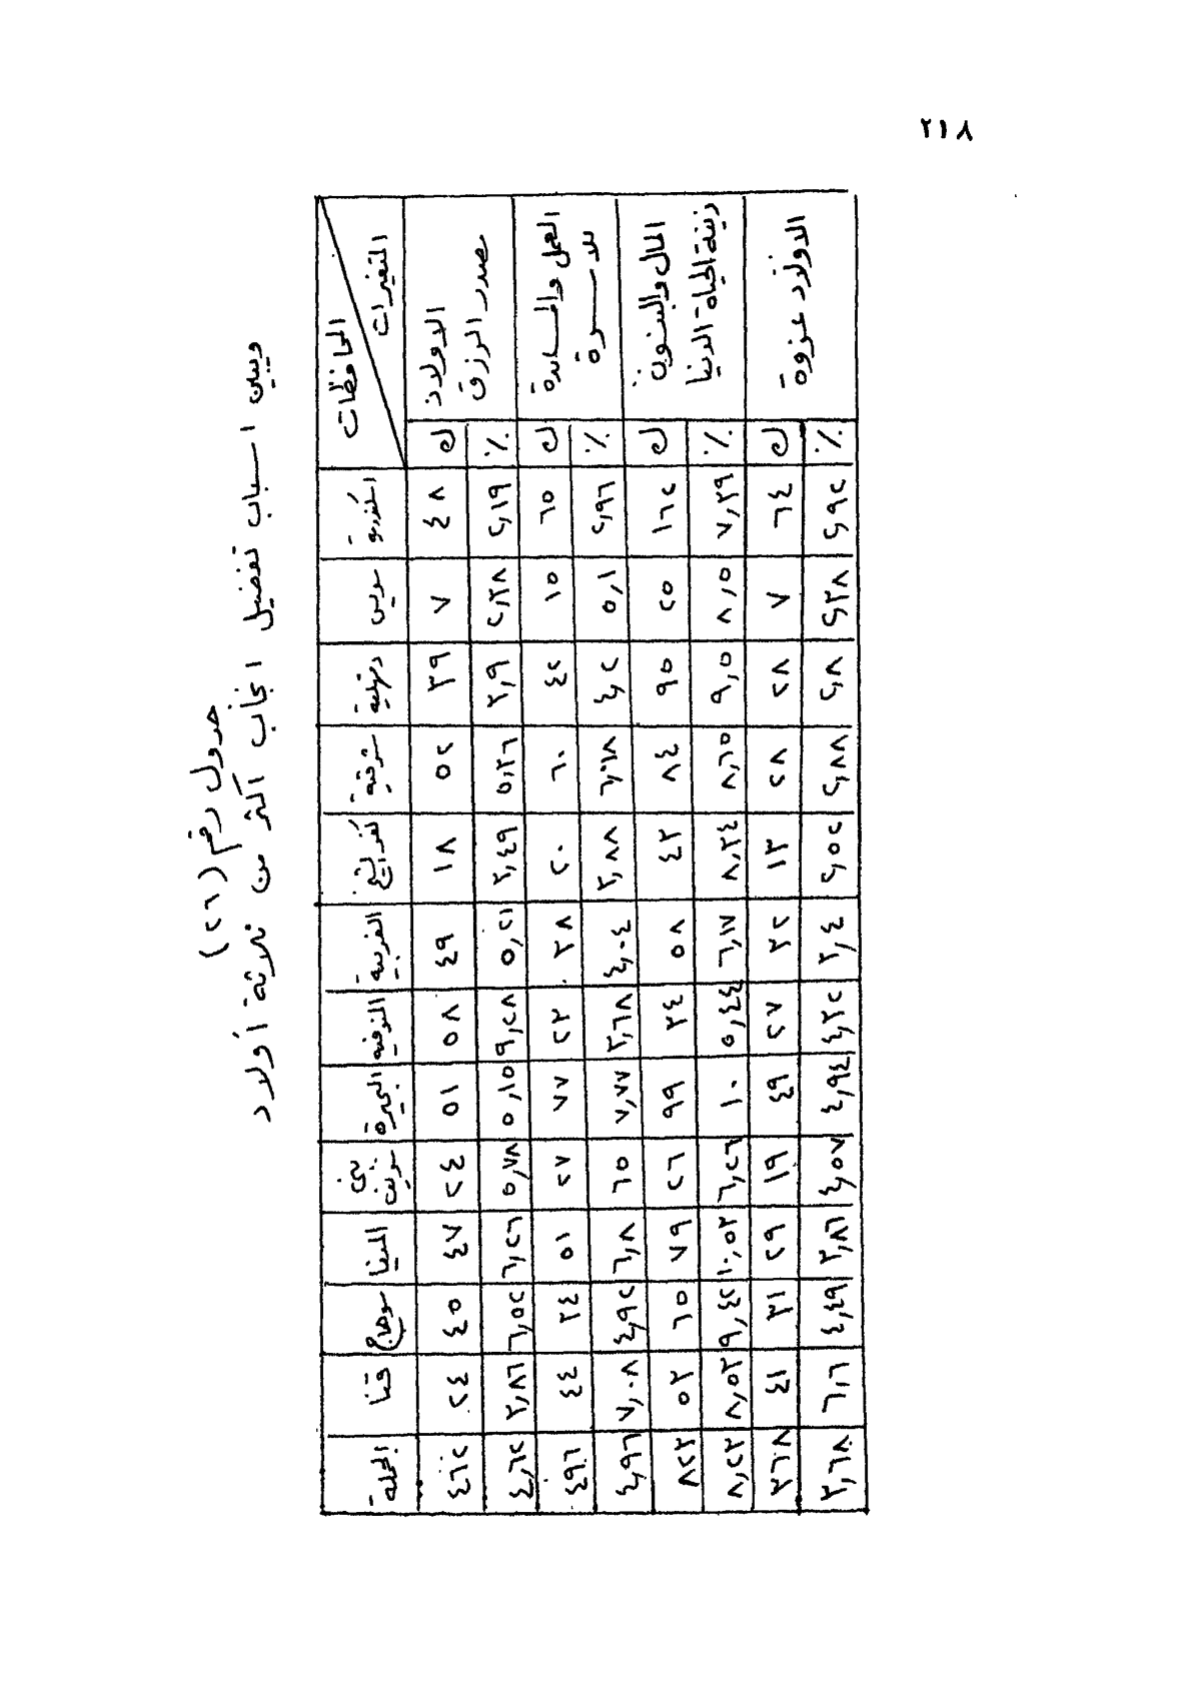 ٢١٨
جدول رقم (٢٦)
ويبين اسباب تفضيل انجاب اكثر من ثلاثة أولاد
المتغيرات
المحافظات اسكندرية سويس دقهلية شرقية كفر الشيخ الغربية المنوفية البحيرة بنى سويف المنيا سوهاج قنا الجملة
الاولاد
مصدر الرزق
ك ٤٨ ٧ ٣٩ ٥٢ ١٨ ٤٩ ٥٨ ٥١ ٢٤ ٤٧ ٤٥ ٢٤ ٤٦٢
٪ ٢,١٩ ٢,٣٨ ٣,٩ ٥,٣٦ ٣,٤٩ ٥,٢١ ٩,٢٨ ٥,١٥ ٥,٧٨ ٦,٢٦ ٦,٥٢ ٣,٨٦ ٤,٦٢
العمل والمساندة
للاسرة
ك ٦٥ ١٥ ٤٢ ٦٠ ٢٠ ٣٨ ٢٣ ٧٧ ٢٧ ٥١ ٣٤ ٤٤ ٤٩٦
٪ ٢,٩٦ ٥,١ ٤,٢ ٦,١٨ ٣,٨٨ ٤,٠٤ ٣,٦٨ ٧,٧٧ ٦٥ ٦,٨ ٤,٩٢ ٧,٠٨ ٤,٩٦
المال والبنون
زينة الحياة الدنيا
ك ١٦٢ ٢٥ ٩٥ ٨٤ ٤٣ ٥٨ ٣٤ ٩٩ ٢٦ ٧٩ ٦٥ ٥٣ ٨٢٣
٪ ٧,٣٩ ٨,٥ ٩,٥ ٨,٦٥ ٨,٣٤ ٦,١٧ ٥,٤٤ ١٠ ٦,٢٦ ١٠,٥٣ ٩,٤٢ ٨,٥٣ ٨,٢٣
الاولاد عزوة
ك ٦٤ ٧ ٢٨ ٢٨ ١٣ ٣٢ ٢٧ ٤٩ ١٩ ٢٩ ٣١ ٤١ ٣٦٨
٪ ٢,٩٢ ٢,٣٨ ٢,٨ ٢,٨٨ ٢,٥٢ ٣,٤ ٤,٣٢ ٤,٩٤ ٤,٥٧ ٣,٨٦ ٤,٤٩ ٦,٦ ٣,٦٨